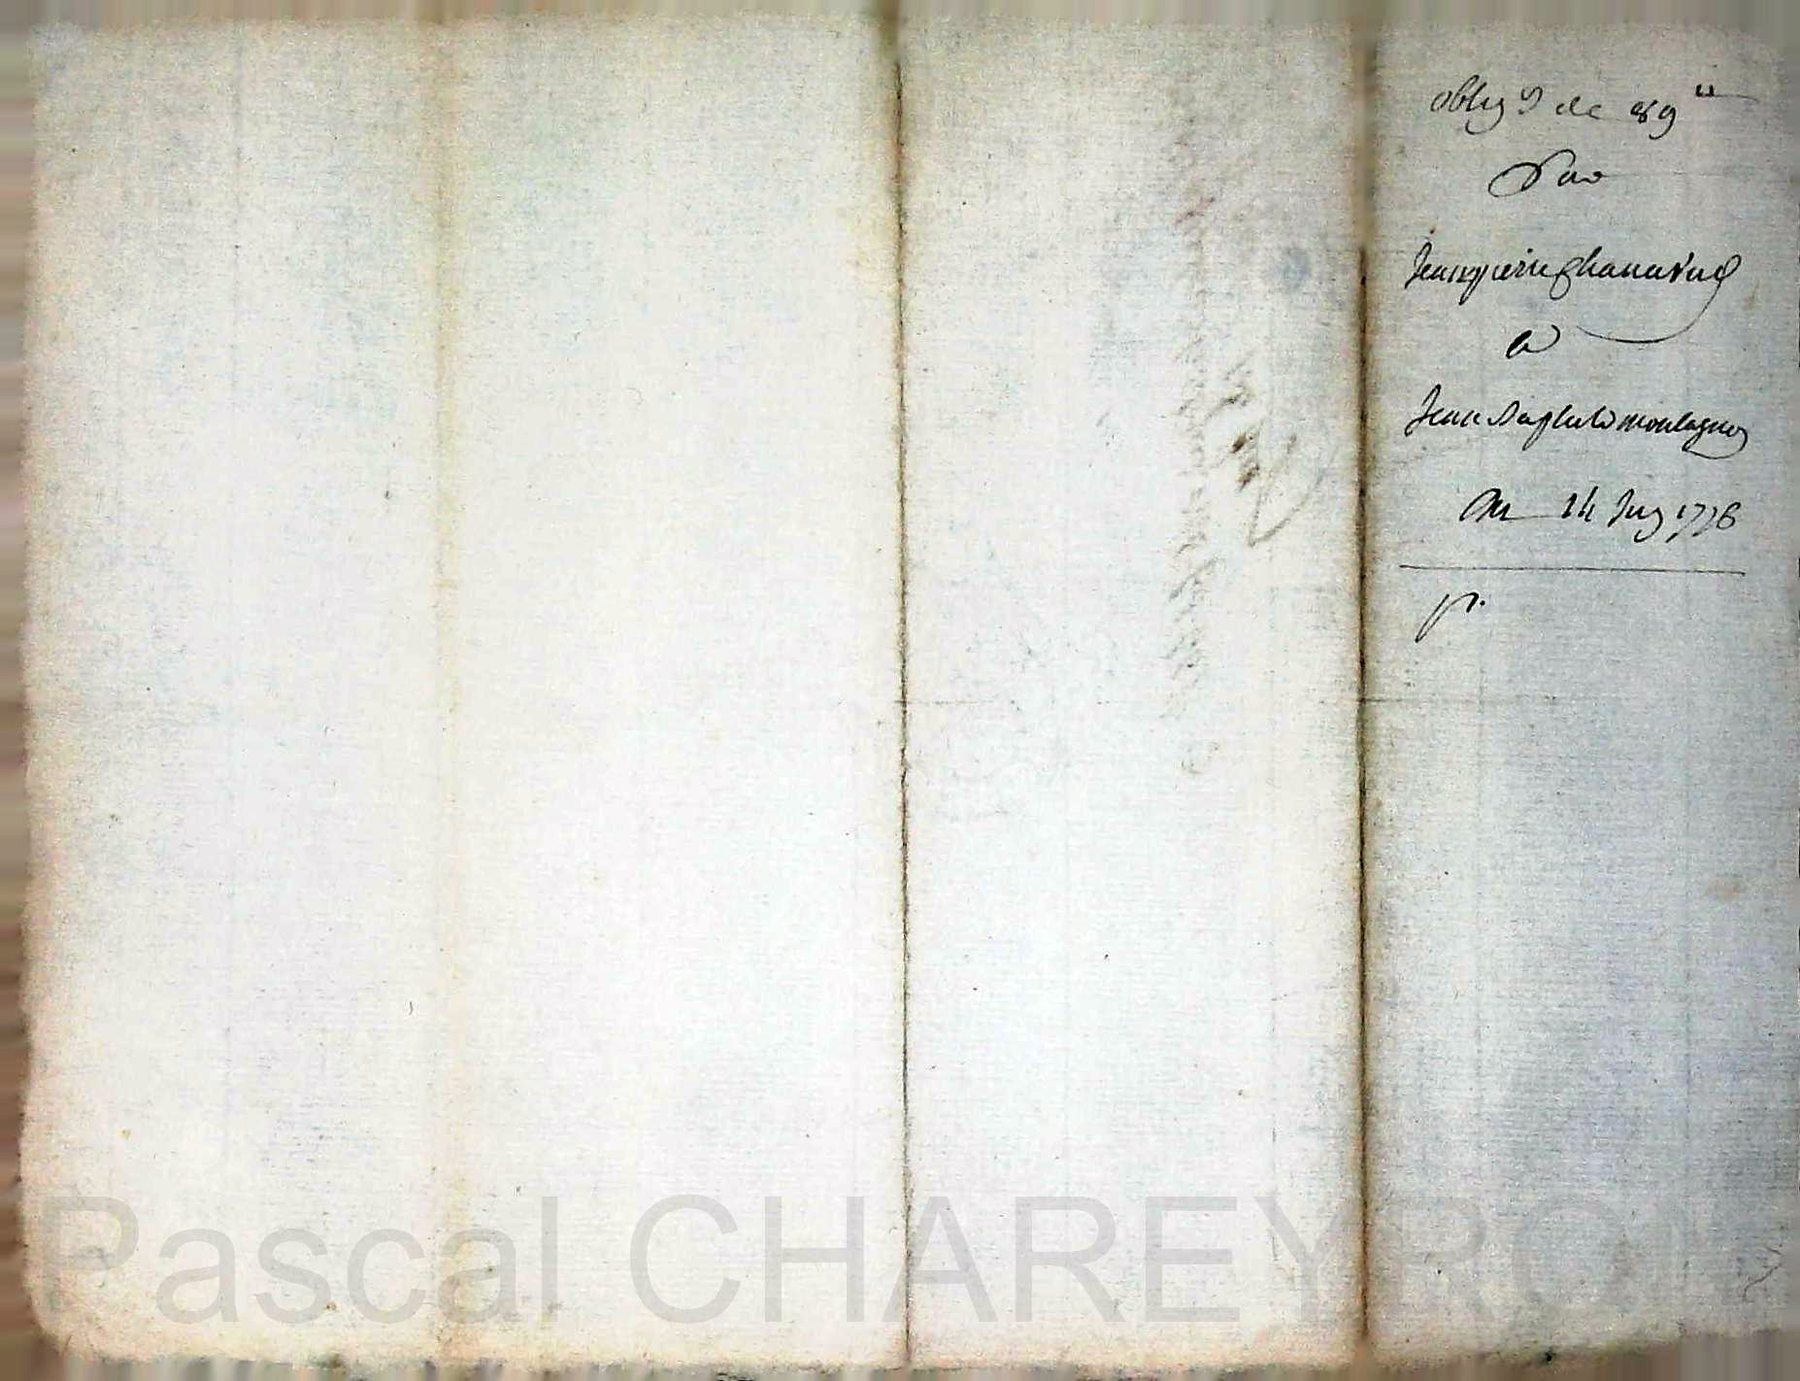 oblig.on de 89 tt
Par
Jean pierre Chanavas
a
Jean Baptiste montagne
Du 14 Juin 1776
pr.
Pascal CHAREYRON